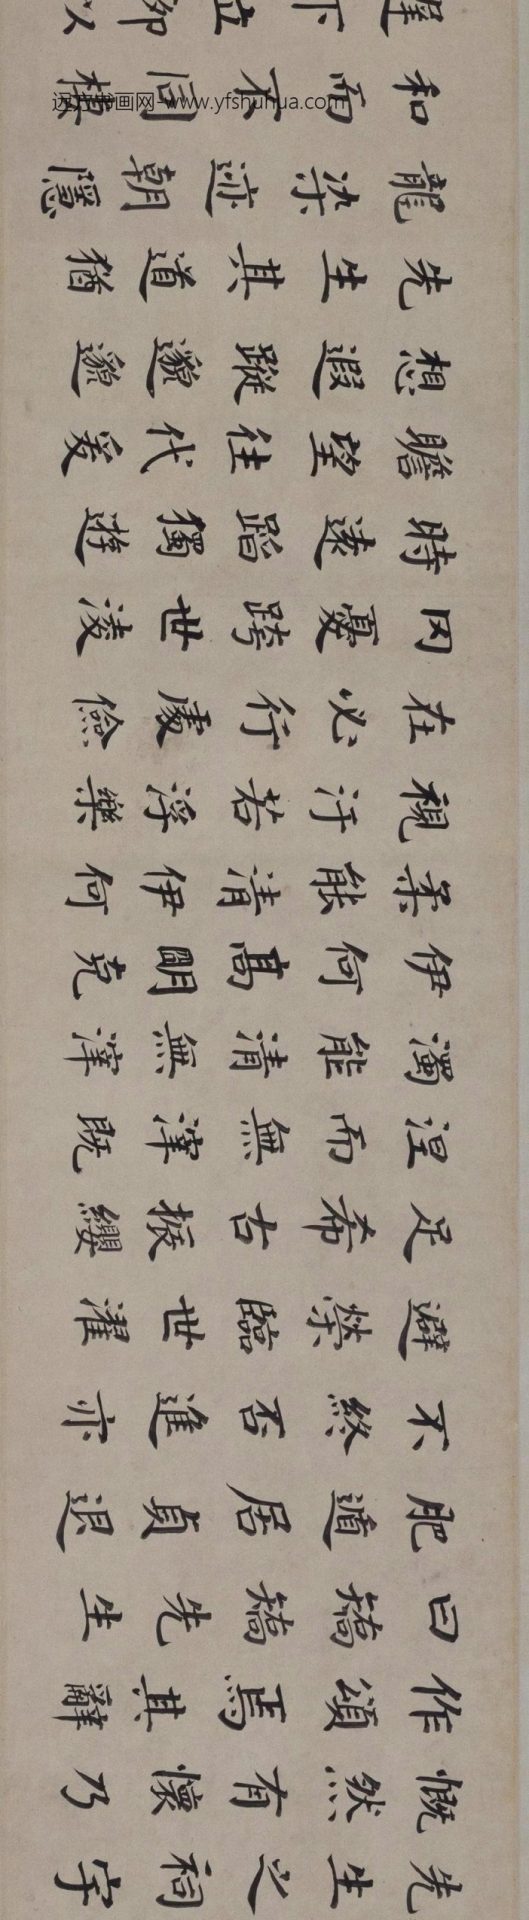 先生之祠宇
慨然有懷乃
作頌焉其辭
曰矯矯先生
肥遁居貞退
不終否進亦
避榮臨世濯
足希古振纓
涅而無滓既
濁能清無滓
伊何高明克
柔能清伊何
視汙若浮樂
在必行處儉
罔憂跨世淩
時遠蹈獨遊
瞻望往代爰
想遐蹤邈邈
先生其道猶
龍染迹朝隱
和而不同棲
遲下位聊以
书画网-www.yfshuhua.com